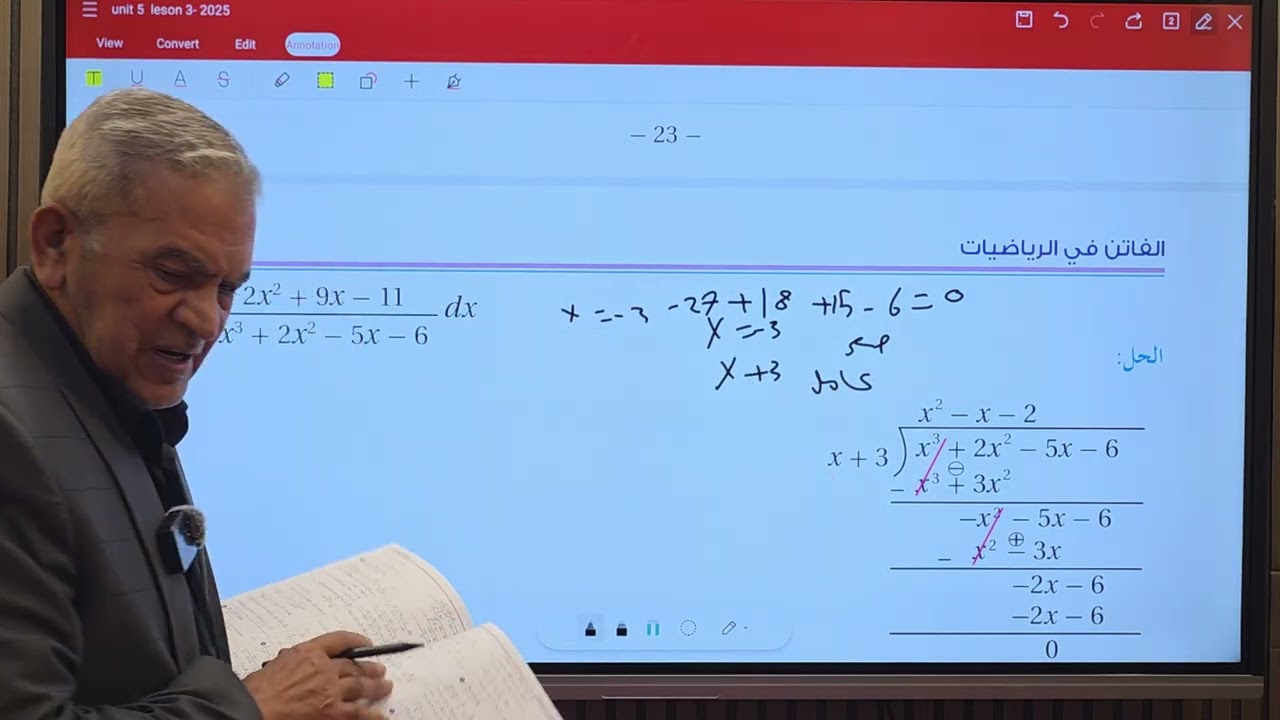 unit 5 leson 3- 2025
View Convert Edit Annotation
– 23 –
الفاتن في الرياضيات
2x² + 9x − 11
x³ + 2x² − 5x − 6
dx
x = -3 -27 + 18 + 15 - 6 = 0
x = -3
x + 3 عامل
الحل:
x² − x − 2
x + 3 ) x³ + 2x² − 5x − 6
− x³ + 3x²
−x² − 5x − 6
− x² − 3x
−2x − 6
−2x − 6
0